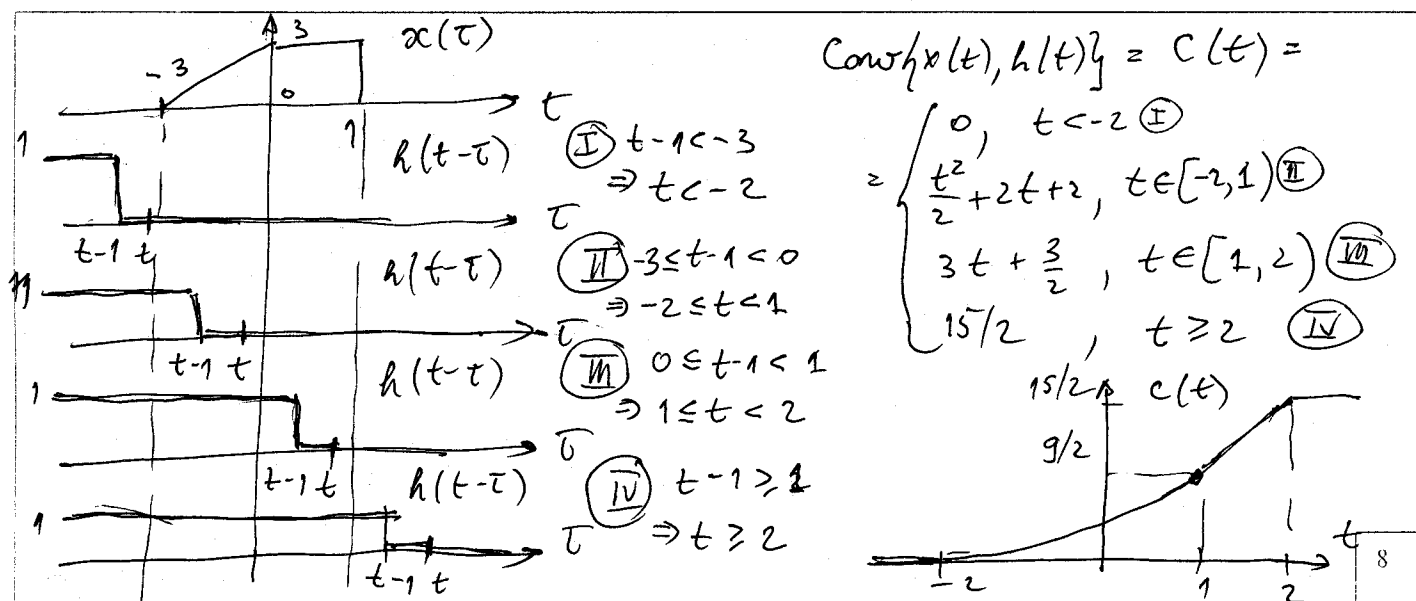 x(τ)
3
-3
0
1
t
1
h(t-τ)
Ⓘ t-1<-3
⇒ t<-2
t-1 t
τ
1
h(t-τ)
Ⅱ -3≤t-1<0
⇒ -2≤t<1
t-1 t
τ
1
h(t-τ)
Ⅲ 0≤t-1<1
⇒ 1≤t<2
t-1 t
τ
1
h(t-τ)
Ⅳ t-1≥1
⇒ t≥2
t-1 t
τ
Conv{x(t), h(t)} = C(t) =
= { 0, t<-2 Ⓘ
t²/2 + 2t + 2, t∈[-2,1) Ⅱ
3t + 3/2, t∈[1,2) Ⅲ
15/2, t≥2 Ⅳ
15/2 c(t)
9/2
t
-2 1 2
8